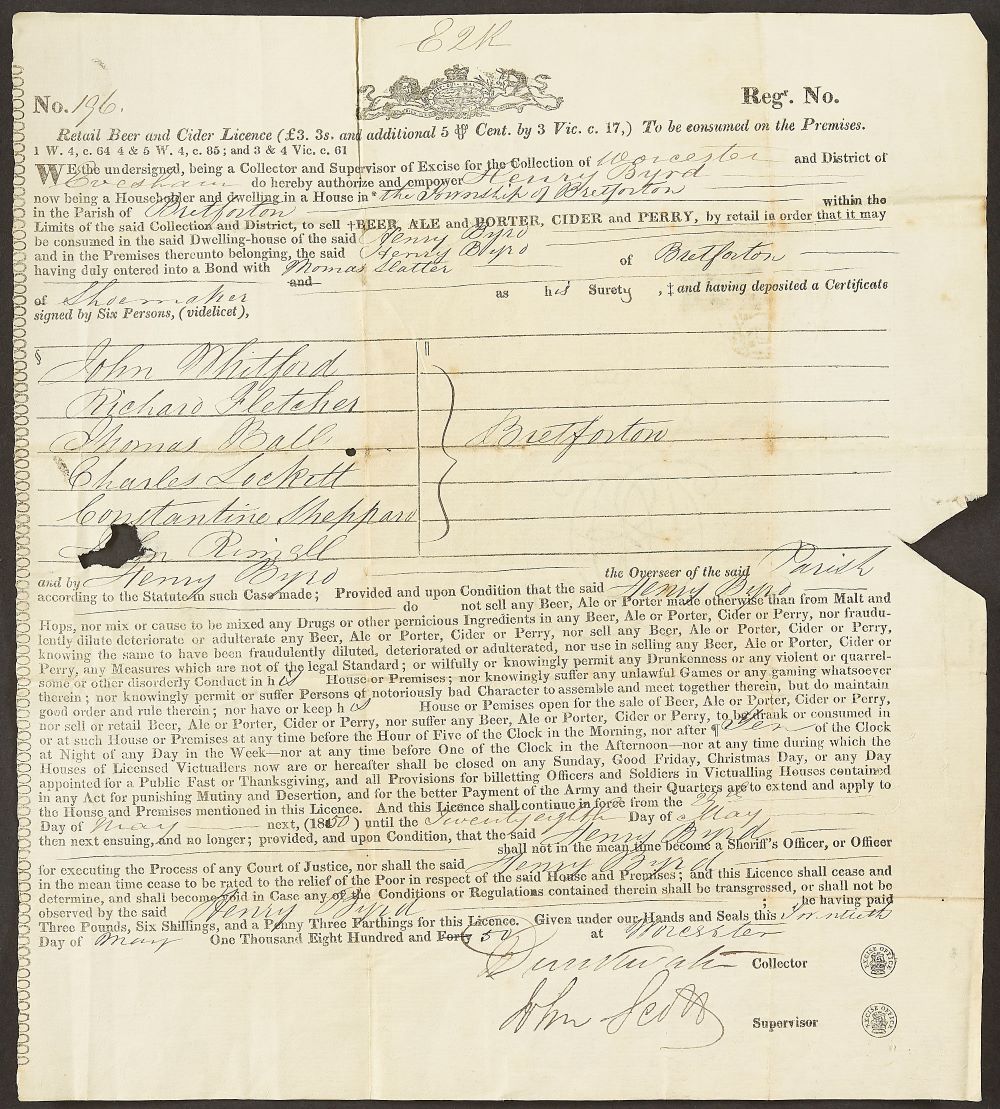 E2K
No. 196.
Regr. No.
Retail Beer and Cider Licence (£3. 3s. and additional 5 ₱ Cent. by 3 Vic. c. 17,) To be consumed on the Premises.
1 W. 4, c. 64 4 & 5 W. 4, c. 85; and 3 & 4 Vic. c. 61
WE the undersigned, being a Collector and Supervisor of Excise for the Collection of Worcester and District of
Evesham do hereby authorize and empower Henry Byrd
now being a Householder and dwelling in a House in * the Township of Bretforton
in the Parish of Bretforton within the
Limits of the said Collection and District, to sell †BEER, ALE and PORTER, CIDER and PERRY, by retail in order that it may
be consumed in the said Dwelling-house of the said Henry Byrd
and in the Premises thereunto belonging, the said Henry Byrd
having duly entered into a Bond with Thomas Slatter of Bretforton
and
of Shoemaker as his Surety , ‡ and having deposited a Certificate
signed by Six Persons, (videlicet),
§ John Whitford ‖
Richard Fletcher
Thomas Ball
Bretforton
Charles Lockett
Constantine Sheppard
John Rimell
and by Henry Byrd the Overseer of the said Parish
according to the Statute in such Case made; Provided and upon Condition that the said Henry Byrd
do not sell any Beer, Ale or Porter made otherwise than from Malt and
Hops, nor mix or cause to be mixed any Drugs or other pernicious Ingredients in any Beer, Ale or Porter, Cider or Perry, nor fraudu-
lently dilute deteriorate or adulterate any Beer, Ale or Porter, Cider or Perry, nor sell any Beer, Ale or Porter, Cider or Perry,
knowing the same to have been fraudulently diluted, deteriorated or adulterated, nor use in selling any Beer, Ale or Porter, Cider or
Perry, any Measures which are not of the legal Standard; or wilfully or knowingly permit any Drunkenness or any violent or quarrel-
some or other disorderly Conduct in his House or Premises; nor knowingly suffer any unlawful Games or any gaming whatsoever
therein; nor knowingly permit or suffer Persons of notoriously bad Character to assemble and meet together therein, but do maintain
good order and rule therein; nor have or keep his House or Pemises open for the sale of Beer, Ale or Porter, Cider or Perry,
nor sell or retail Beer, Ale or Porter, Cider or Perry, nor suffer any Beer, Ale or Porter, Cider or Perry, to be drank or consumed in
or at such House or Premises at any time before the Hour of Five of the Clock in the Morning, nor after ¶ Ten of the Clock
at Night of any Day in the Week—nor at any time before One of the Clock in the Afternoon—nor at any time during which the
Houses of Licensed Victuallers now are or hereafter shall be closed on any Sunday, Good Friday, Christmas Day, or any Day
appointed for a Public Fast or Thanksgiving, and all Provisions for billetting Officers and Soldiers in Victualling Houses contained
in any Act for punishing Mutiny and Desertion, and for the better Payment of the Army and their Quarters are to extend and apply to
the House and Premises mentioned in this Licence. And this Licence shall continue in force from the
Day of May next, (1850) until the Twenty eighth Day of May
then next ensuing, and no longer; provided, and upon Condition, that the said Henry Byrd
shall not in the mean time become a Sheriff's Officer, or Officer
for executing the Process of any Court of Justice, nor shall the said Henry Byrd
in the mean time cease to be rated to the relief of the Poor in respect of the said House and Premises; and this Licence shall cease and
determine, and shall become void in Case any of the Conditions or Regulations contained therein shall be transgressed, or shall not be
observed by the said Henry Byrd ; he having paid
Three Pounds, Six Shillings, and a Penny Three Farthings for this Licence. Given under our Hands and Seals this Twentieth
Day of May One Thousand Eight Hundred and Forty 50 at Worcester
Collector
EXCISE OFFICE
John Scott Supervisor
EXCISE OFFICE